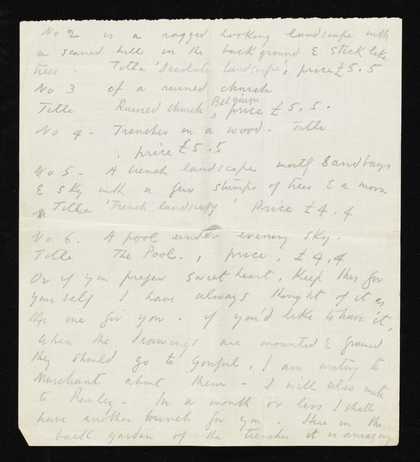 No 2 is a ragged looking landscape with
a scarred hill in the background & stick like
trees. Title 'Desolate landscape', price £5.5
No 3 of a ruined church
Title Ruined church, Belgium, price £5.5.
No 4 - Trenches in a wood. Title
, price £5.5
No 5 - A trench landscape mostly Sandbags
& sky with a few stumps of trees & a moon
Title 'Trench landscape' Price £4.4
No 6. A pool under evening sky.
Title The Pool., price, £4.4
Or if you prefer sweetheart, keep this for
yourself I have always thought of it as
the one for you. if you'd like to have it,
When the drawings are mounted & framed
they should go to Goupil, I am writing to
Marchant about them. I will also write
to Rowley. In a month or less I shall
have another bunch for you. Here in the
back garden of the trenches it is amazing